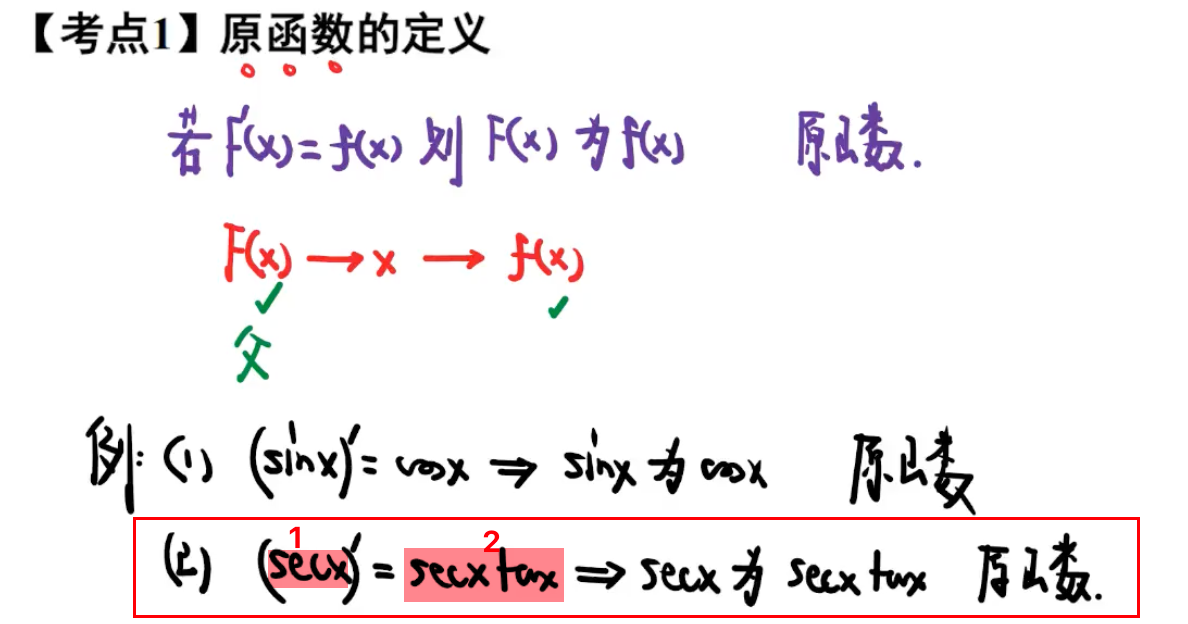 【考点1】原函数的定义
若 F'(x)=f(x) 则 F(x) 为 f(x) 原函数.
F(x) → x → f(x)
✓ ✓
父
例: (1) (sinx)'= cosx ⇒ sinx 为 cosx 原函数
1 2
(2) (secx)' = secx tanx ⇒ secx 为 secx tanx 原函数.